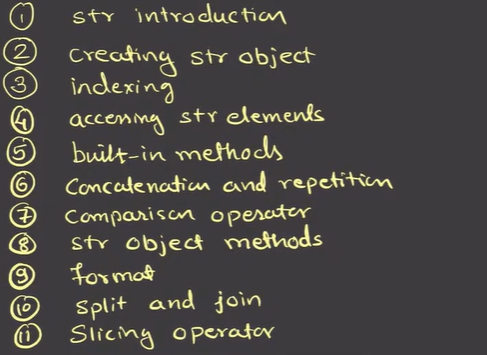 1 str introduction
2 creating str object
3 indexing
4 accessing str elements
5 built-in methods
6 Concatenation and repetition
7 Comparison operator
8 str object methods
9 format
10 split and join
11 Slicing operator